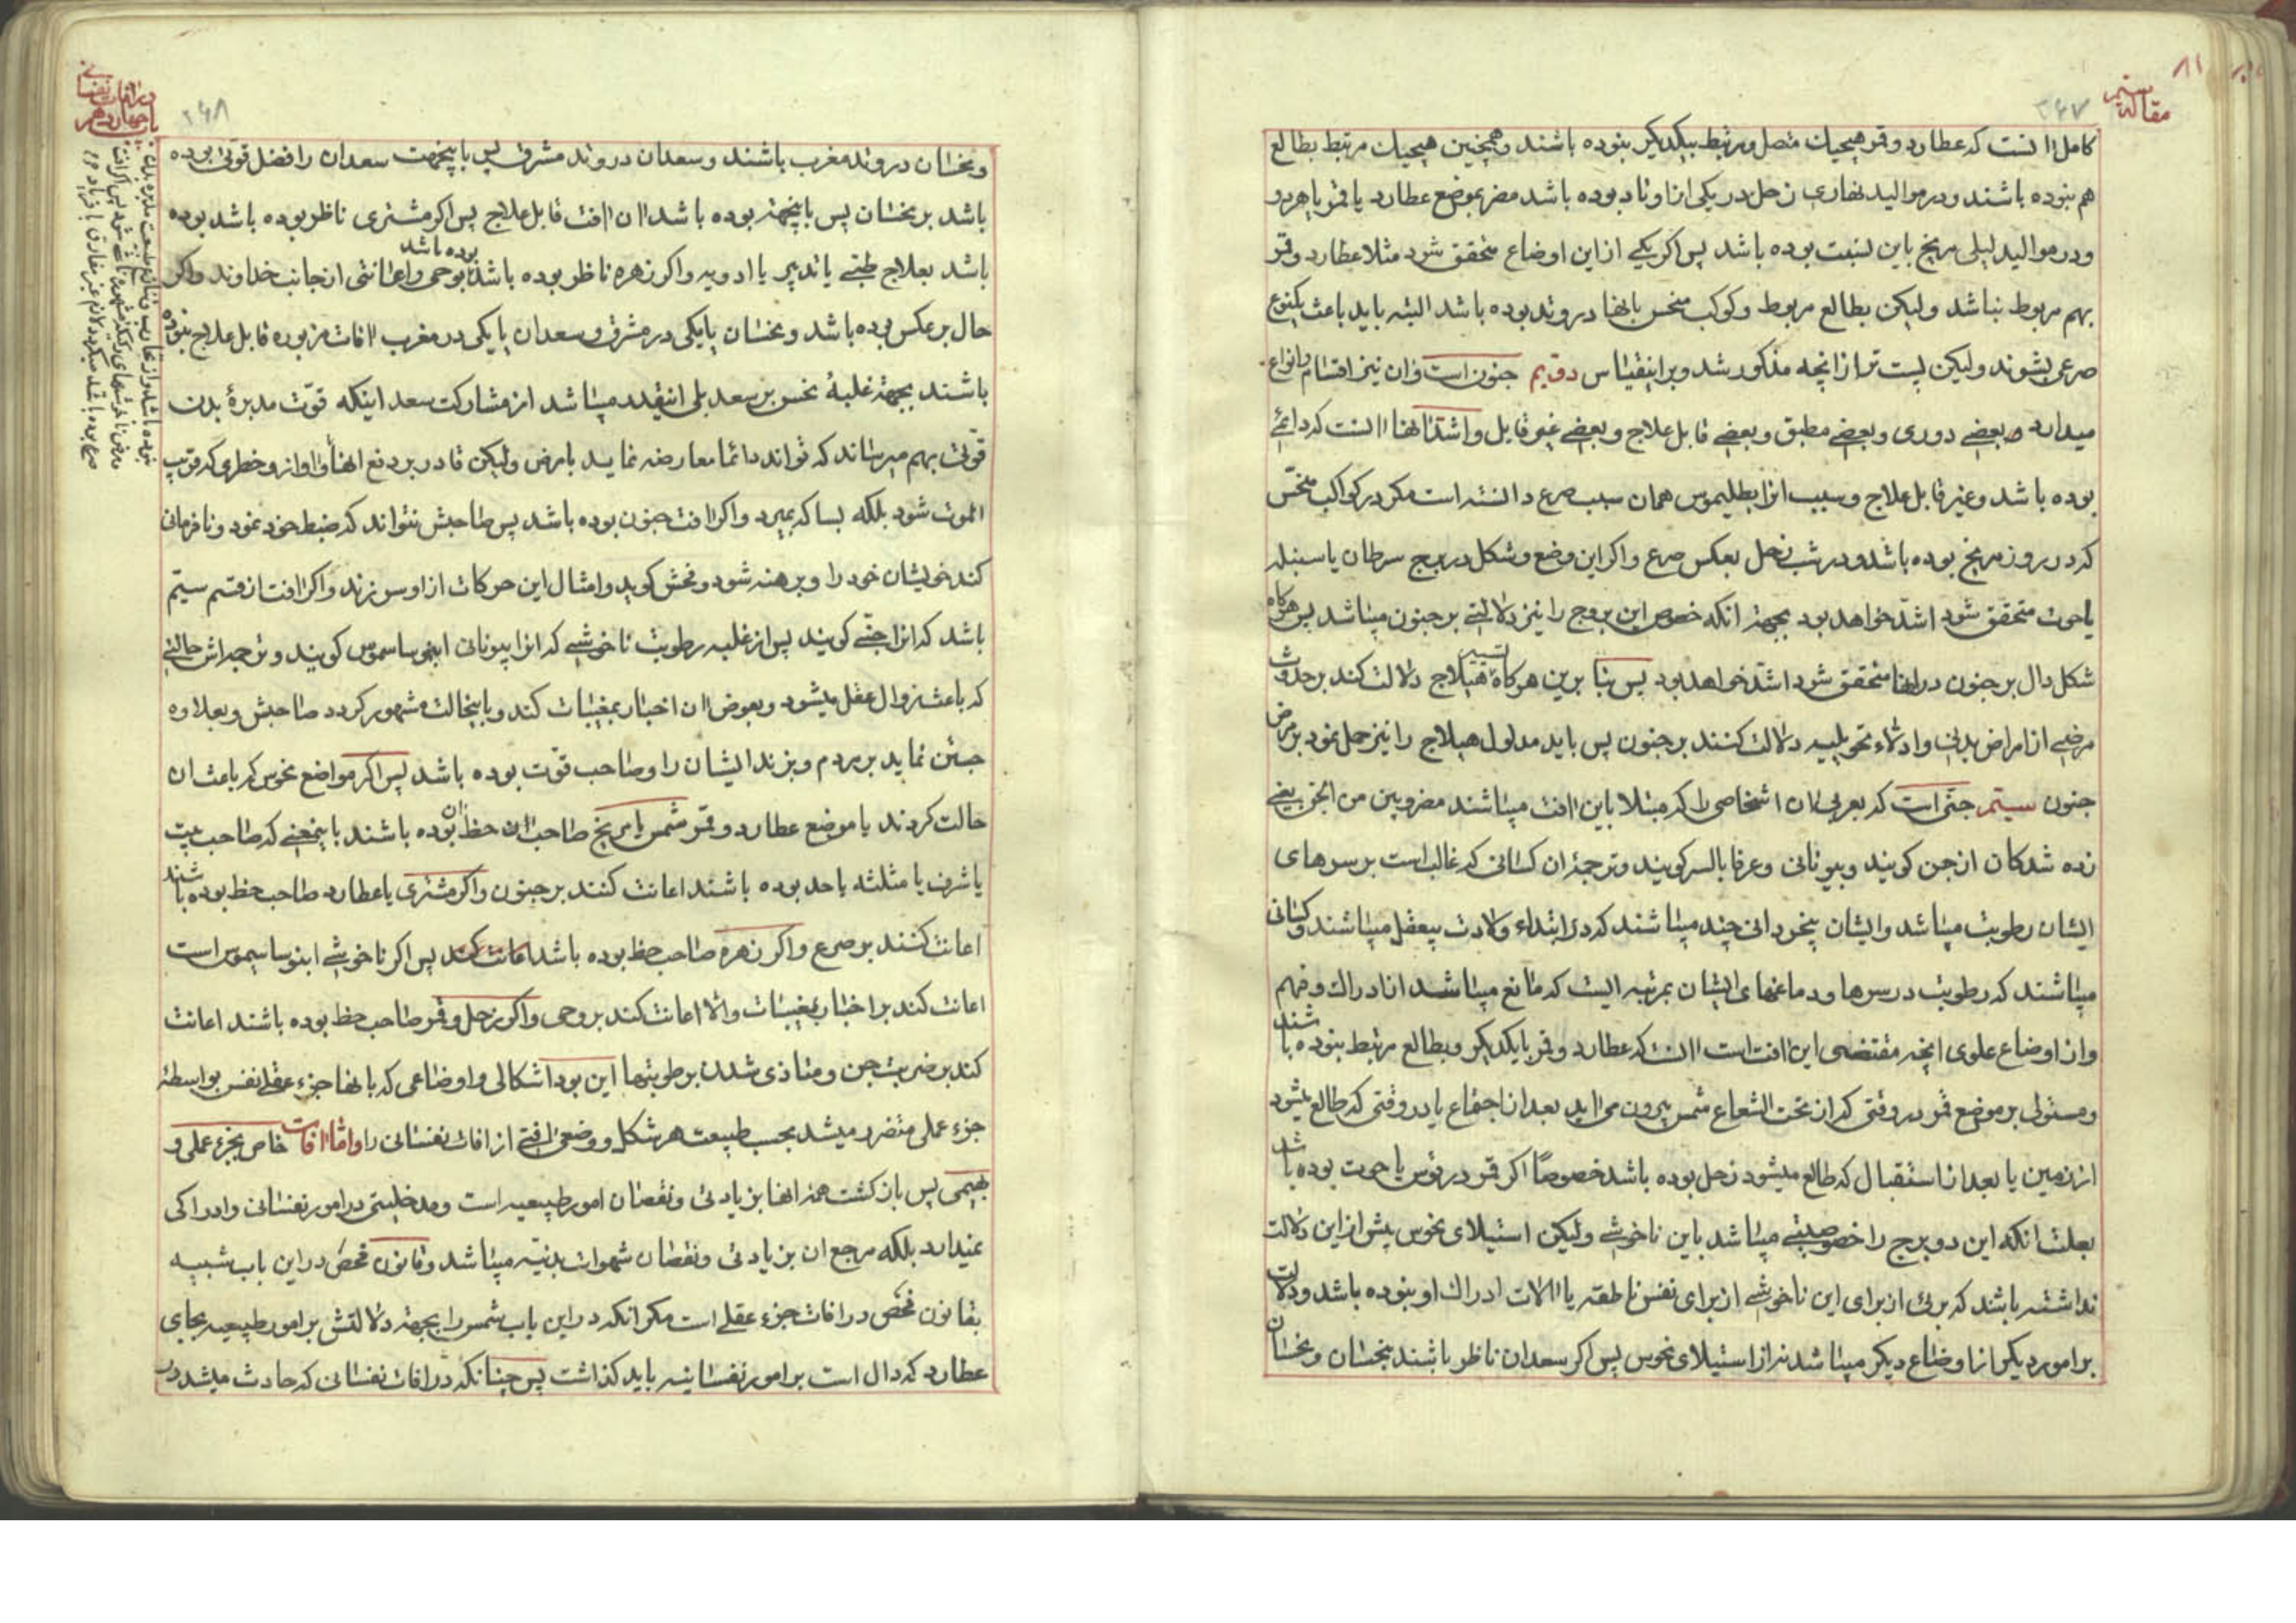 مقاله سیم
۲۶۷
کامل اانست که عطارد و قمر هیچیک متصل و مرتبط بیکدیکر بنوده باشند و همچنین هیچیک مرتبط بطالع
هم بنوده باشند و در موالید نهاری زحل در یکی از اوتاد بوده باشد مضر بموضع عطارد یا قمر یا هر دو
و در موالید لیلی مریخ باین نسبت بوده باشد پس اکر یکی از این اوضاع متحقق شود مثلا عطارد و قمر
بهم مربوط نباشد ولیکن بطالع مربوط و کوکب منحس بانها در وتد بوده باشد البته باید باعث یکنوع
صرعی بشوند ولیکن پست تر از انچه مذکور شد و براینقیاس دویم جنون است و ان نیز اقسام و انواع
میدارد و بعضی دوری و بعضی مطبق و بعضی قابل علاج و بعضی غیر قابل و اشد انها اانست که دائمی
بوده باشد و غیر قابل علاج و سبب انرا بطلیموس همان سبب صرع دانسته است مکر در کواکب منحس
که در روز مریخ بوده باشد و در شب زحل بعکس صرع و اکر این وضع و شکل در برج سرطان یا سنبله
یا حوت متحقق شود اشد خواهد بود بجهة انکه خصوص این بروج را نیز دلالتی بر جنون میباشد پس هرکاه
شکل دال بر جنون در انها متحقق شود اشد خواهد بود پس بنا برین هرکاه تسییر هیلاج دلالت کند بر حدوث
مرضی از امراض بدنی و ادلاء تحویلیه دلالت کنند بر جنون پس باید مدلول هیلاج را نیز حمل نمود بر مرض
جنون سیتم جنی است که بعربی ان اشخاصی را که مبتلا باین اافت میباشند مضروبین من الجن یعنی
زده شدکان از جن کویند و بیونانی و عرفا بالسر کویند و ترجمهٔ ان کسانی که غالب است بر سرهای
ایشان رطوبت میباشد و ایشان بیخردانی چند میباشند که در ابتداء ولادت بیعقل میباشند و کسانی
میباشند که رطوبت در سرها و دماغهای ایشان بمرتبه ایست که مانع میباشد از ادراک و فهم
و از اوضاع علوی انچه مقتضی این اافت است اانست که عطارد و قمر بایکدیکر و بطالع مرتبط بنوده باشند
و مستولی بر موضع قمر در وقتی که از تحت الشعاع شمس بیرون می اید بعد از اجتماع یا در وقتی که طالع میشود
از زمین یا بعد از استقبال که طالع میشود زحل بوده باشد خصوصًا اکر قمر در قوس یا حوت بوده باشد
بعلت انکه این دو برج را خصوصیتی میباشد باین ناخوشی ولیکن استیلای نحوس بیش از این دلالت
نداشته باشد که برئ از برای این ناخوشی از برای نفس ناطقه یا االات ادراک او بنوده باشد و دلالت
بر امور دیکر از اوضاع دیکر میباشد نه از استیلای نحوس پس اکر سعدان ناظر باشند بنحسان و نحسان
در اافات نفسانی
باب چهاردهم
۲۶۸
و نحسان در وتد مغرب باشند و سعدان در وتد مشرق پس باینجهت سعدان را فضل قوتی بوده
باشد بر نحسان پس باینجهة بوده باشد اان اافت قابل علاج پس اکر مشتری ناظر بوده باشد بوده
باشد بعلاج طبی یا تدبیر یا ادویه و اکر زهره ناظر بوده باشد بوده باشد بوحی و اعانتی از جانب خداوند و اکر
حال بر عکس بوده باشد و نحسان یا یکی در مشرق و سعدان یا یکی در مغرب اافات مزبوره قابل علاج بنوده
باشند بجهة غلبهٔ نحس بر سعد بلی اینقدر میباشد از مشارکت سعد اینکه قوّت مدبرهٔ بدن
قوّتی بهم میرساند که تواند دائما معارضه نماید با مرض ولیکن قادر بر دفع انها و از خطری که قریب
الموت شود بلکه بسا که بمیرد و اکر اافت جنون بوده باشد پس صاحبش نتواند که ضبط خود نمود و نافرمانی
کند خویشان خود را و برهنه شود و فحش کوید و امثال این حرکات از او سر زند و اکر اافت از قسم سیتم
باشد که انرا جنی کویند پس از غلبه رطوبت ناخوشی که انرا بیونانی اینوساسموس کویند و ترجمه اش حالتی
که باعث زوال عقل میشود و بعوض اان اخبار بمغیبات کند و باینحالت مشهور کردد صاحبش و بعلاوه
جستن نماید بر مردم و بزند ایشان را و صاحب قوّت بوده باشد پس اکر مواضع نحوس که باعث ان
حالت کردند یا موضع عطارد و قمر شمس یا مریخ صاحب اان حظ بوده باشند باینمعنی که صاحب بیت
یا شرف یا مثلثه یا حد بوده باشند اعانت کنند بر جنون و اکر مشتری یا عطارد صاحب حظ بوده باشند
اعانت کنند بر صرع و اکر زهره صاحب حظ بوده باشد اعانت کند پس اکر ناخوشی اینوساسیموس است
اعانت کند بر اخبار بمغیبات و الا اعانت کند بر وحی و اکر زحل و قمر صاحب حظ بوده باشند اعانت
کند بر ضربت جن و متاذی شدن برطوبتها این بود اشکالی و اوضاعی که بانها جزء عقلی نفس بواسطهٔ
جزء عملی متضرر میشد بحسب طبیعت هر شکل و وضعی اافتی از اافات نفسانی را و امّا اافات خاص بجزء عملی و
بهیمی پس بازکشت همهٔ انها بزیادتی و نقصان امور طبیعیه است و مدخلیتی در امور نفسانی و ادراکی
نمیدارد بلکه مرجع ان بزیادتی و نقصان شهوات بدنیّه میباشد و قانون فحص در این باب شبیه
بقانون فحص در اافات جزء عقلی است مکر انکه در این باب شمس را بجهة دلالتش بر امور طبیعیه بجای
عطارد که دال است بر امور نفسانیه باید کذاشت پس چنانکه در اافات نفسانی که حادث میشد در